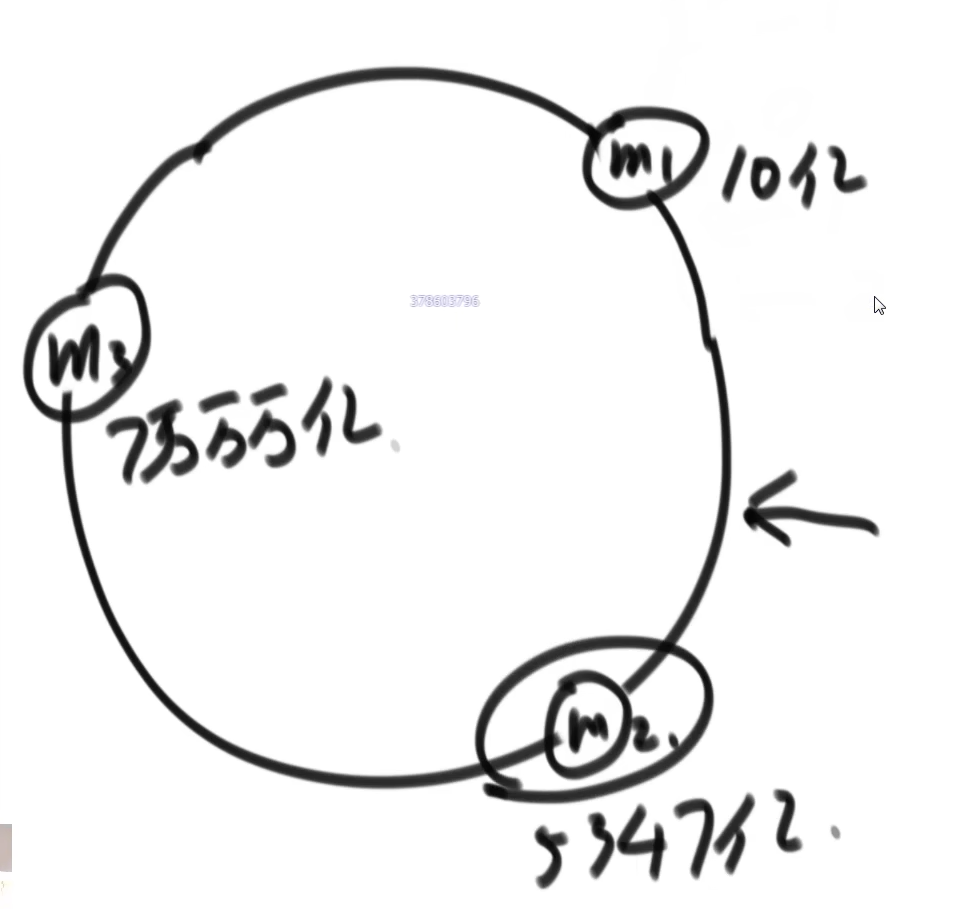 m1
10亿
378603796
m3
7万万万亿.
m2.
5347亿.